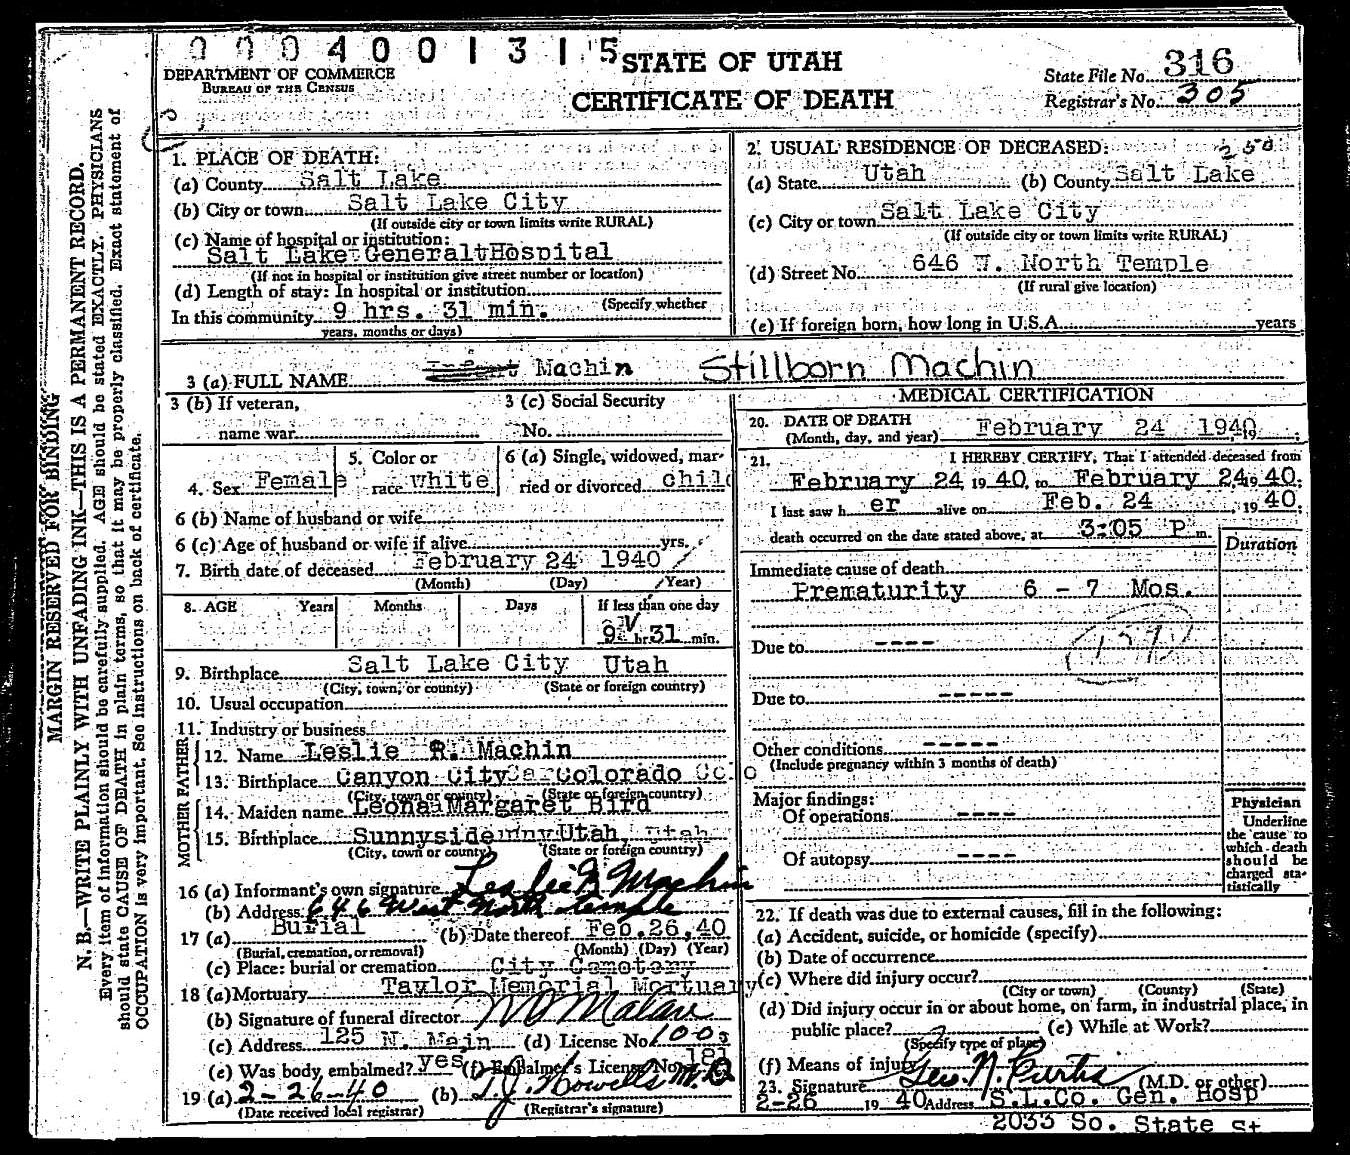 0004001315
STATE OF UTAH
CERTIFICATE OF DEATH
DEPARTMENT OF COMMERCE
BUREAU OF THE CENSUS
State File No. 316
Registrar's No. 305
MARGIN RESERVED FOR BINDING
N. B.—WRITE PLAINLY WITH UNFADING INK—THIS IS A PERMANENT RECORD.
Every item of information should be carefully supplied. AGE should be stated EXACTLY. PHYSICIANS
should state CAUSE OF DEATH in plain terms, so that it may be properly classified. Exact statement of
OCCUPATION is very important. See instructions on back of certificate.
1. PLACE OF DEATH:
(a) County Salt Lake
(b) City or town Salt Lake City
(If outside city or town limits write RURAL)
(c) Name of hospital or institution:
Salt Lake General Hospital
(If not in hospital or institution give street number or location)
(d) Length of stay: In hospital or institution
(Specify whether
In this community 9 hrs. 31 min.
years, months or days)
2. USUAL RESIDENCE OF DECEASED: 250
(a) State Utah (b) County Salt Lake
(c) City or town Salt Lake City
(If outside city or town limits write RURAL)
(d) Street No. 646 W. North Temple
(If rural give location)
(e) If foreign born, how long in U.S.A. years
3 (a) FULL NAME Infant Machin Stillborn Machin
3 (b) If veteran,
name war
3 (c) Social Security
No.
4. Sex Female
5. Color or
race white
6 (a) Single, widowed, mar-
ried or divorced child
6 (b) Name of husband or wife
6 (c) Age of husband or wife if alive yrs.
7. Birth date of deceased February 24 1940
(Month) (Day) (Year)
8. AGE Years Months Days If less than one day
9 hr. 31 min.
9. Birthplace Salt Lake City Utah
(City, town, or county) (State or foreign country)
10. Usual occupation
11. Industry or business
FATHER
12. Name Leslie R. Machin
13. Birthplace Canyon City Colorado
(City, town or county) (State or foreign country)
MOTHER
14. Maiden name Leona Margaret Bird
15. Birthplace Sunnyside Utah
(City, town or county) (State or foreign country)
16 (a) Informant's own signature Leslie R Machin
(b) Address 646 West North temple
17 (a) Burial (b) Date thereof Feb. 26, 40
(Burial, cremation, or removal) (Month) (Day) (Year)
(c) Place: burial or cremation City Cemetery
18 (a) Mortuary Taylor Memorial Mortuary
(b) Signature of funeral director
(c) Address 125 N. Main (d) License No. 100
(e) Was body embalmed? yes (f) Embalmer's License No. 181
19 (a) 2-26-40 (b) T.J. Howells M.D
(Date received local registrar) (Registrar's signature)
MEDICAL CERTIFICATION
20. DATE OF DEATH
(Month, day, and year) February 24 1940
21. I HEREBY CERTIFY, That I attended deceased from
February 24, 19 40, to February 24, 19 40;
I last saw h er alive on Feb. 24, 19 40;
death occurred on the date stated above, at 3:05 P m.
Duration
Immediate cause of death
Prematurity 6 - 7 Mos.
Due to ----
Due to -----
Other conditions -----
(Include pregnancy within 3 months of death)
Major findings:
Of operations ----
Of autopsy ----
Physician
Underline
the cause to
which death
should be
charged sta-
tistically
22. If death was due to external causes, fill in the following:
(a) Accident, suicide, or homicide (specify)
(b) Date of occurrence
(c) Where did injury occur?
(City or town) (County) (State)
(d) Did injury occur in or about home, on farm, in industrial place, in
public place? (e) While at Work?
(Specify type of place)
(f) Means of injury
23. Signature Geo. N. Curtis (M.D. or other)
2-26 19 40 Address S.L.Co. Gen. Hosp
2033 So. State St